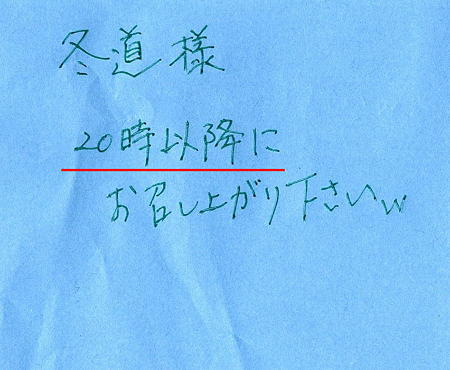 冬道様
20時以降に
お召し上がり下さいw